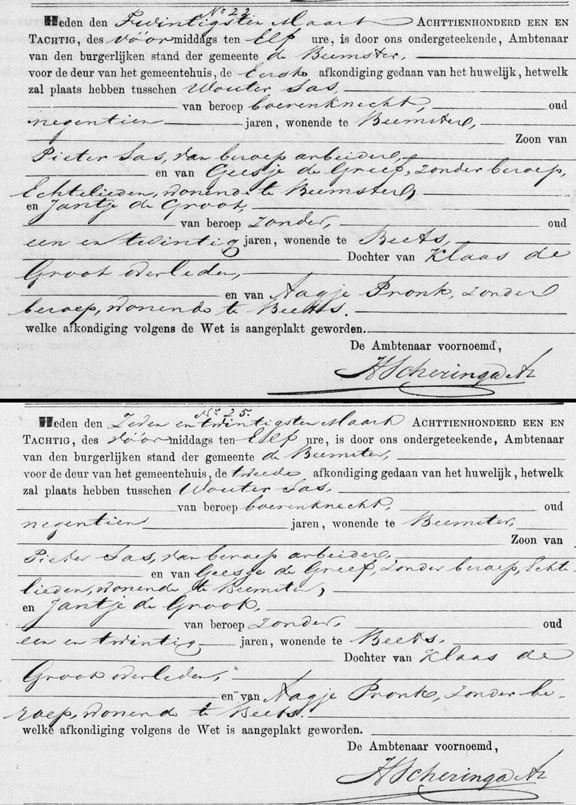 No. 22.
Heden den Twintigsten Maart ACHTTIENHONDERD EEN EN
TACHTIG, des vóór middags ten Elf ure, is door ons ondergeteekende, Ambtenaar
van den burgerlijken stand der gemeente de Beemster,
voor de deur van het gemeentehuis, de Eerste afkondiging gedaan van het huwelijk, hetwelk
zal plaats hebben tusschen Wouter Sas,
van beroep boerenknecht, oud
negentien jaren, wonende te Beemster,
Zoon van
Pieter Sas, van beroep arbeider,
en van Geesje de Greef, zonder beroep,
Echtelieden, wonende te Beemster,
en Jantje de Groot,
van beroep zonder, oud
een en twintig jaren, wonende te Beets,
Dochter van Klaas de
Groot overleden,
en van Aagje Pronk, zonder
beroep, wonende te Beets.
welke afkondiging volgens de Wet is aangeplakt geworden.
De Ambtenaar voornoemd,
HScheringa Az
No. 25.
Heden den Zeven en twintigsten Maart ACHTTIENHONDERD EEN EN
TACHTIG, des vóór middags ten Elf ure, is door ons ondergeteekende, Ambtenaar
van den burgerlijken stand der gemeente de Beemster,
voor de deur van het gemeentehuis, de tweede afkondiging gedaan van het huwelijk, hetwelk
zal plaats hebben tusschen Wouter Sas,
van beroep boerenknecht, oud
negentien jaren, wonende te Beemster,
Zoon van
Pieter Sas, van beroep arbeider,
en van Geesje de Greef, zonder beroep, Echte-
lieden, wonende te Beemster,
en Jantje de Groot,
van beroep zonder, oud
een en twintig jaren, wonende te Beets,
Dochter van Klaas de
Groot overleden,
en van Aagje Pronk, zonder be-
roep, wonende te Beets.
welke afkondiging volgens de Wet is aangeplakt geworden.
De Ambtenaar voornoemd,
HScheringa Az